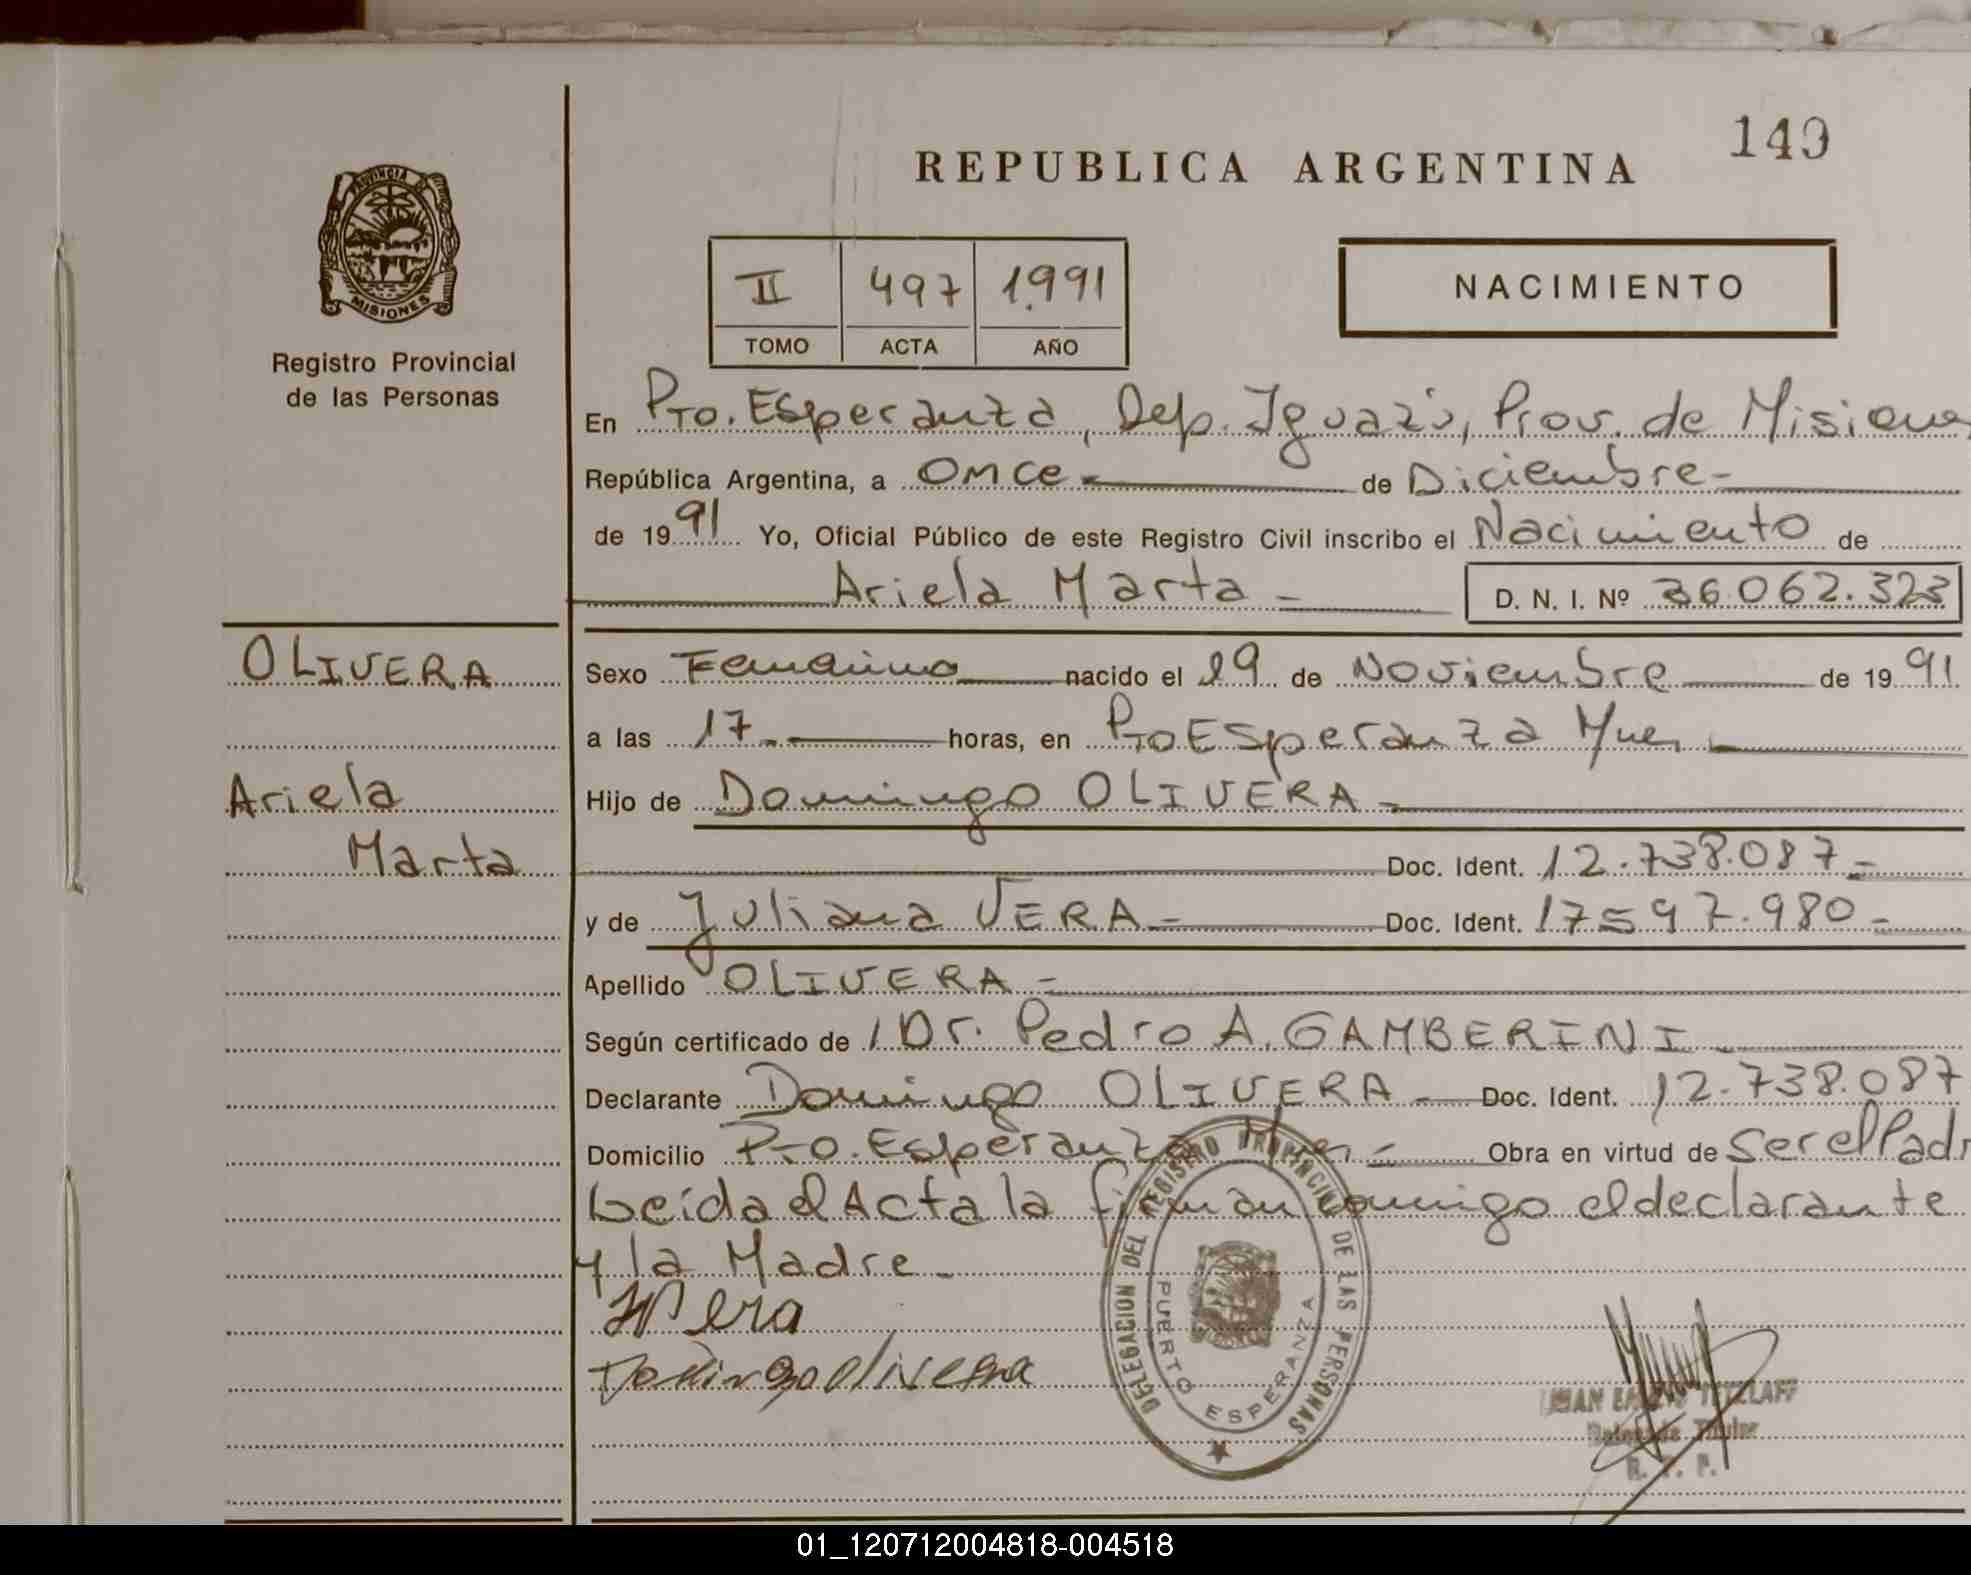 149
REPUBLICA ARGENTINA
PROVINCIA DE MISIONES
Registro Provincial
de las Personas
II 497 1.991
TOMO ACTA AÑO
NACIMIENTO
En Pto. Esperanza, Dep. Iguazú, Prov. de Misiones
República Argentina, a once de Diciembre
de 1991 Yo, Oficial Público de este Registro Civil inscribo el Nacimiento de
Ariela Marta D. N. I. Nº 36.062.323
OLIVERA
Ariela
Marta
Sexo Femenino nacido el 19 de Noviembre de 1991
a las 17 horas, en Pto Esperanza Mnes
Hijo de Domingo OLIVERA
Doc. Ident. 12.738.087
y de Juliana VERA Doc. Ident. 17597.980
Apellido OLIVERA
Según certificado de / Dr. Pedro A. GAMBERINI
Declarante Domingo OLIVERA Doc. Ident. 12.738.087
Domicilio Pto. Esperanza Mnes Obra en virtud de Ser el Padr
Leída el Acta la firman conmigo el declarante
y la Madre
JVera
Domingo olivera
DELEGACION DEL REGISTRO PROVINCIAL DE LAS PERSONAS
PUERTO ESPERANZA
TETZLAFF
Delegado Titular
R. P. P.
01_120712004818-004518